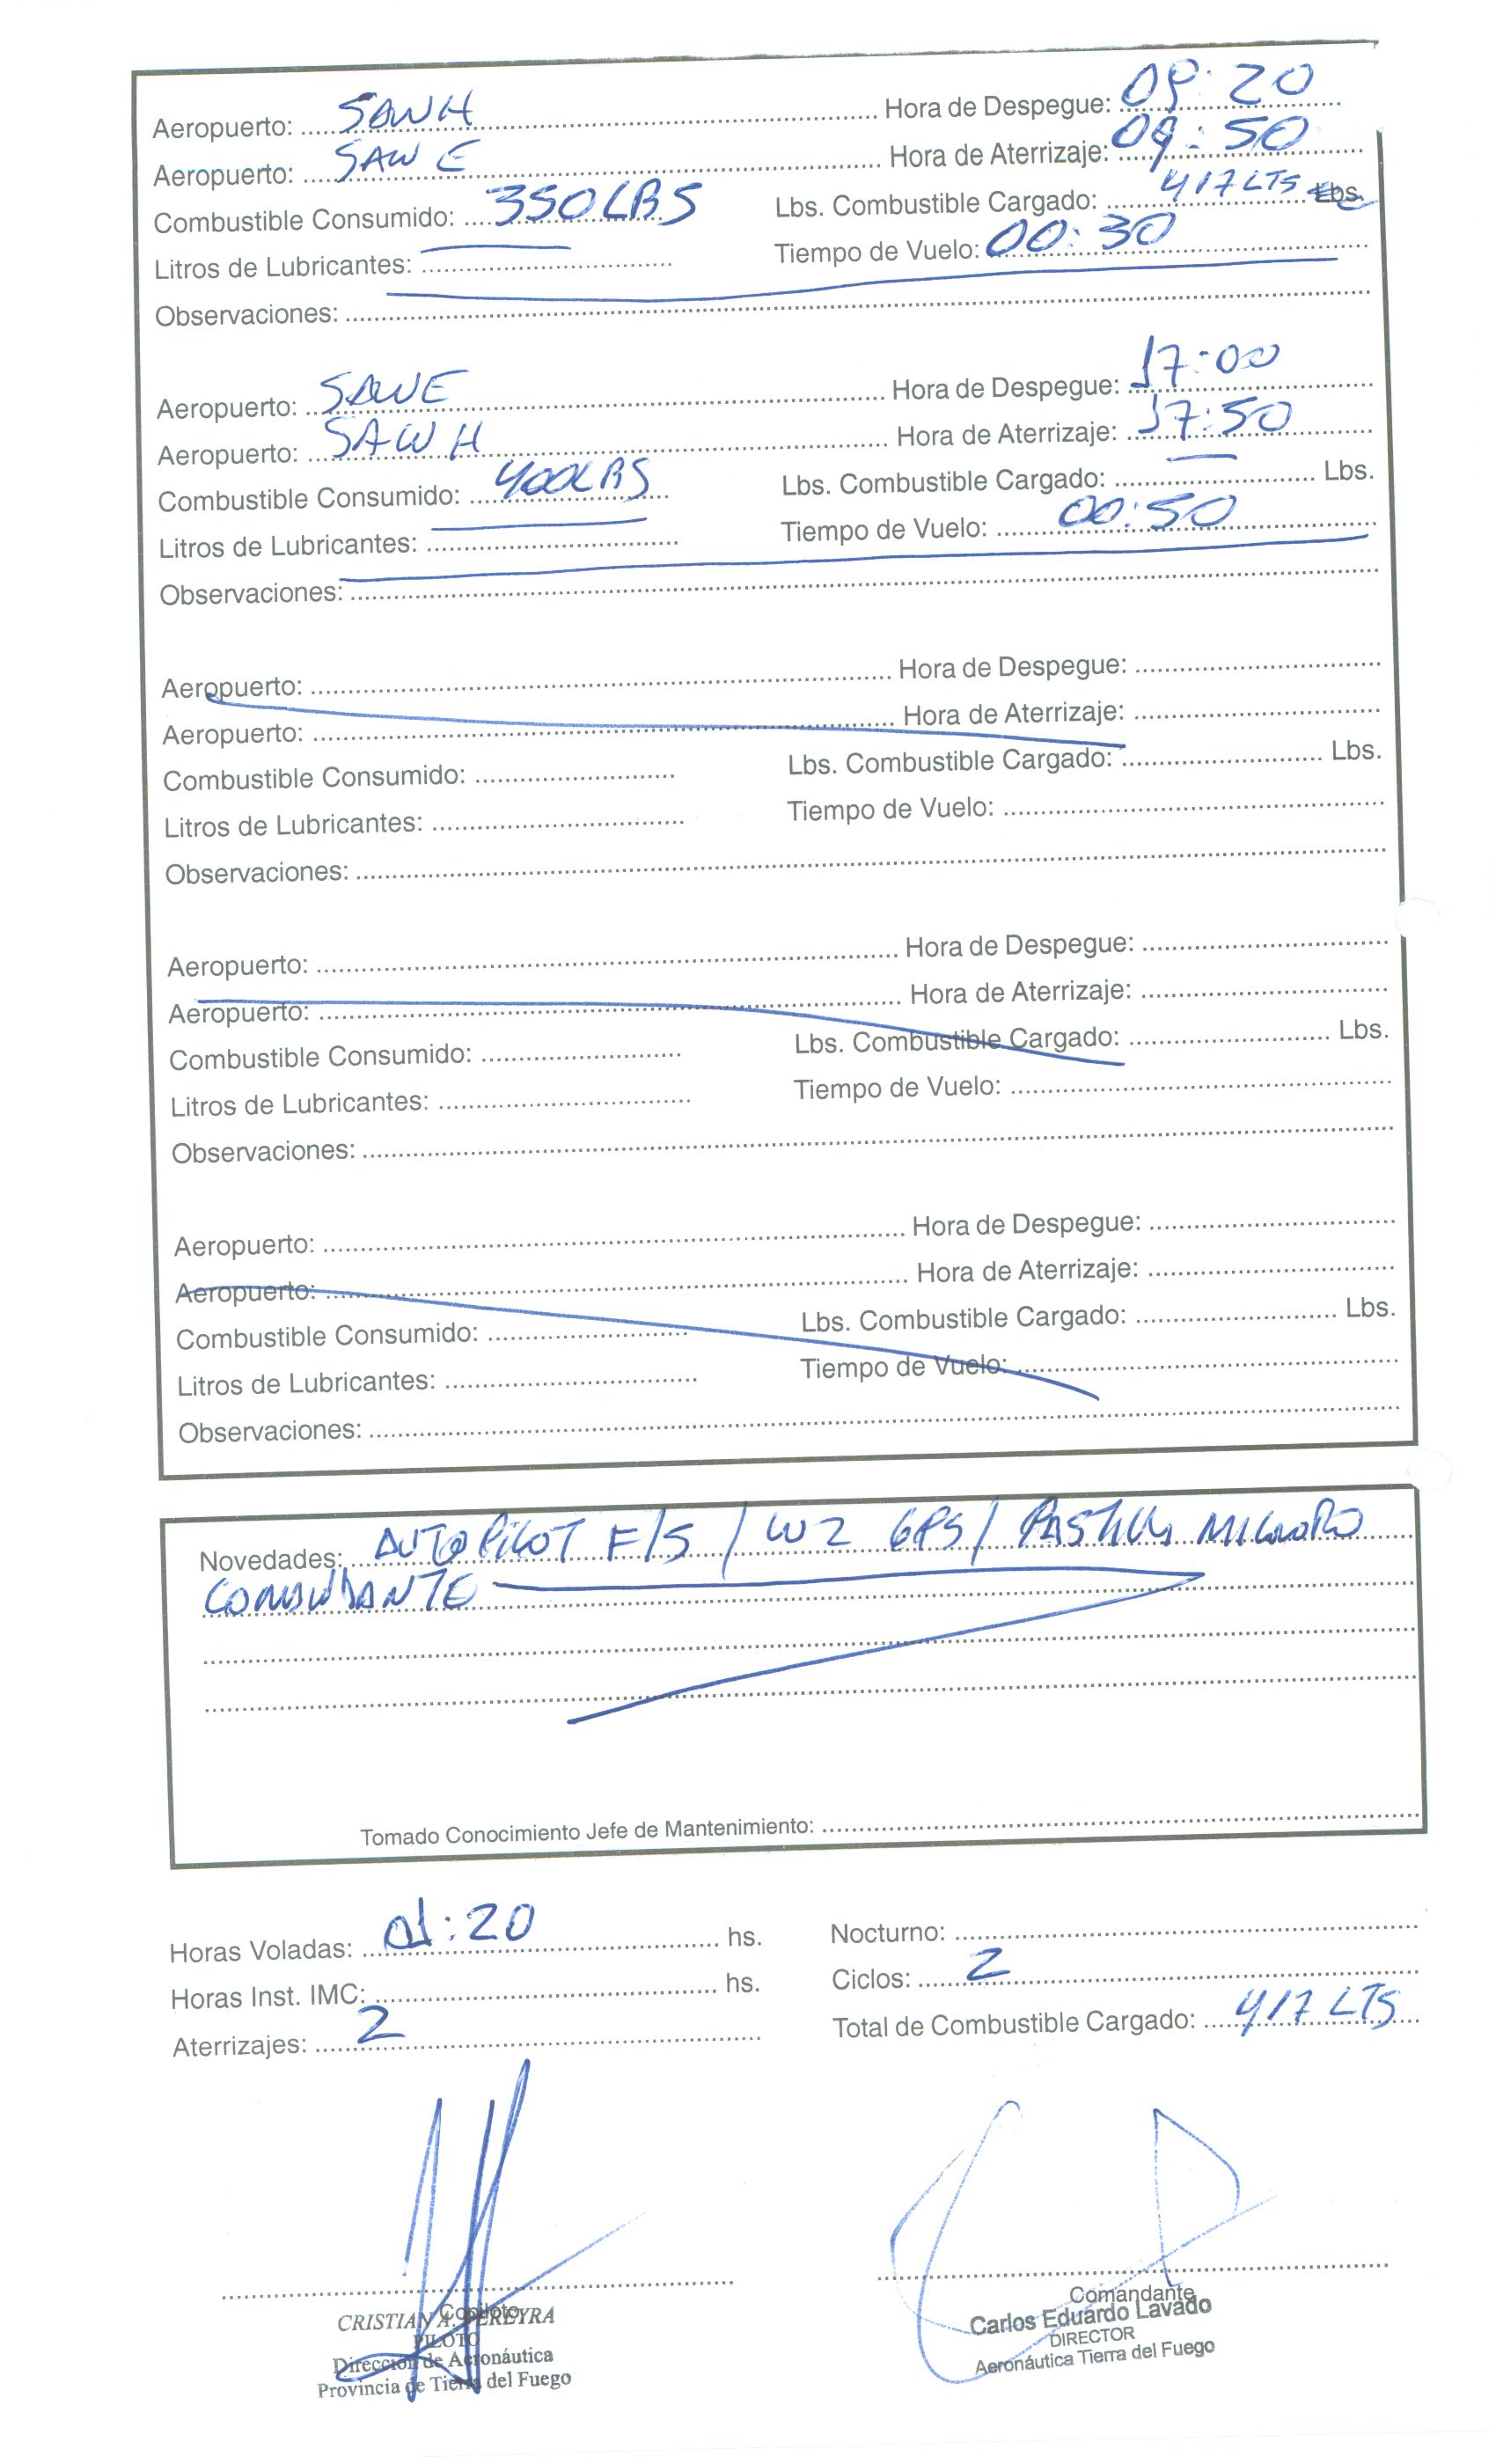 Aeropuerto: SAWH Hora de Despegue: 09:20
Aeropuerto: SAWE Hora de Aterrizaje: 09:50
Combustible Consumido: 350 LBS Lbs. Combustible Cargado: 417 LTS Lbs.
Litros de Lubricantes: Tiempo de Vuelo: 00:30
Observaciones:
Aeropuerto: SAWE Hora de Despegue: 17:00
Aeropuerto: SAWH Hora de Aterrizaje: 17:50
Combustible Consumido: 400LBS Lbs. Combustible Cargado: Lbs.
Litros de Lubricantes: Tiempo de Vuelo: 00:50
Observaciones:
Aeropuerto: Hora de Despegue:
Aeropuerto: Hora de Aterrizaje:
Combustible Consumido: Lbs. Combustible Cargado: Lbs.
Litros de Lubricantes: Tiempo de Vuelo:
Observaciones:
Aeropuerto: Hora de Despegue:
Aeropuerto: Hora de Aterrizaje:
Combustible Consumido: Lbs. Combustible Cargado: Lbs.
Litros de Lubricantes: Tiempo de Vuelo:
Observaciones:
Aeropuerto: Hora de Despegue:
Aeropuerto: Hora de Aterrizaje:
Combustible Consumido: Lbs. Combustible Cargado: Lbs.
Litros de Lubricantes: Tiempo de Vuelo:
Observaciones:
Novedades: AUTOPILOT F/S / GPS /
Tomado Conocimiento Jefe de Mantenimiento:
Horas Voladas: 01:20 hs. Nocturno:
Horas Inst. IMC: hs. Ciclos: 2
Aterrizajes: 2 Total de Combustible Cargado: 417 LTS
Copiloto Comandante
CRISTIAN A. PEREYRA Carlos Eduardo Lavado
PILOTO DIRECTOR
Dirección de Aeronáutica Aeronáutica Tierra del Fuego
Provincia de Tierra del Fuego